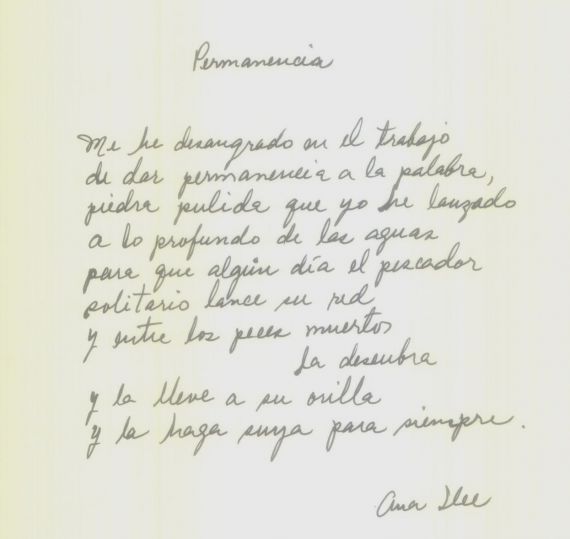 Permanencia
Me he desangrado en el trabajo
de dar permanencia a la palabra,
piedra pulida que yo he lanzado
a lo profundo de las aguas
para que algún día el pescador
solitario lance su red
y entre los peces muertos
la descubra
y la lleve a su orilla
y la haga suya para siempre.
Ana Ilce